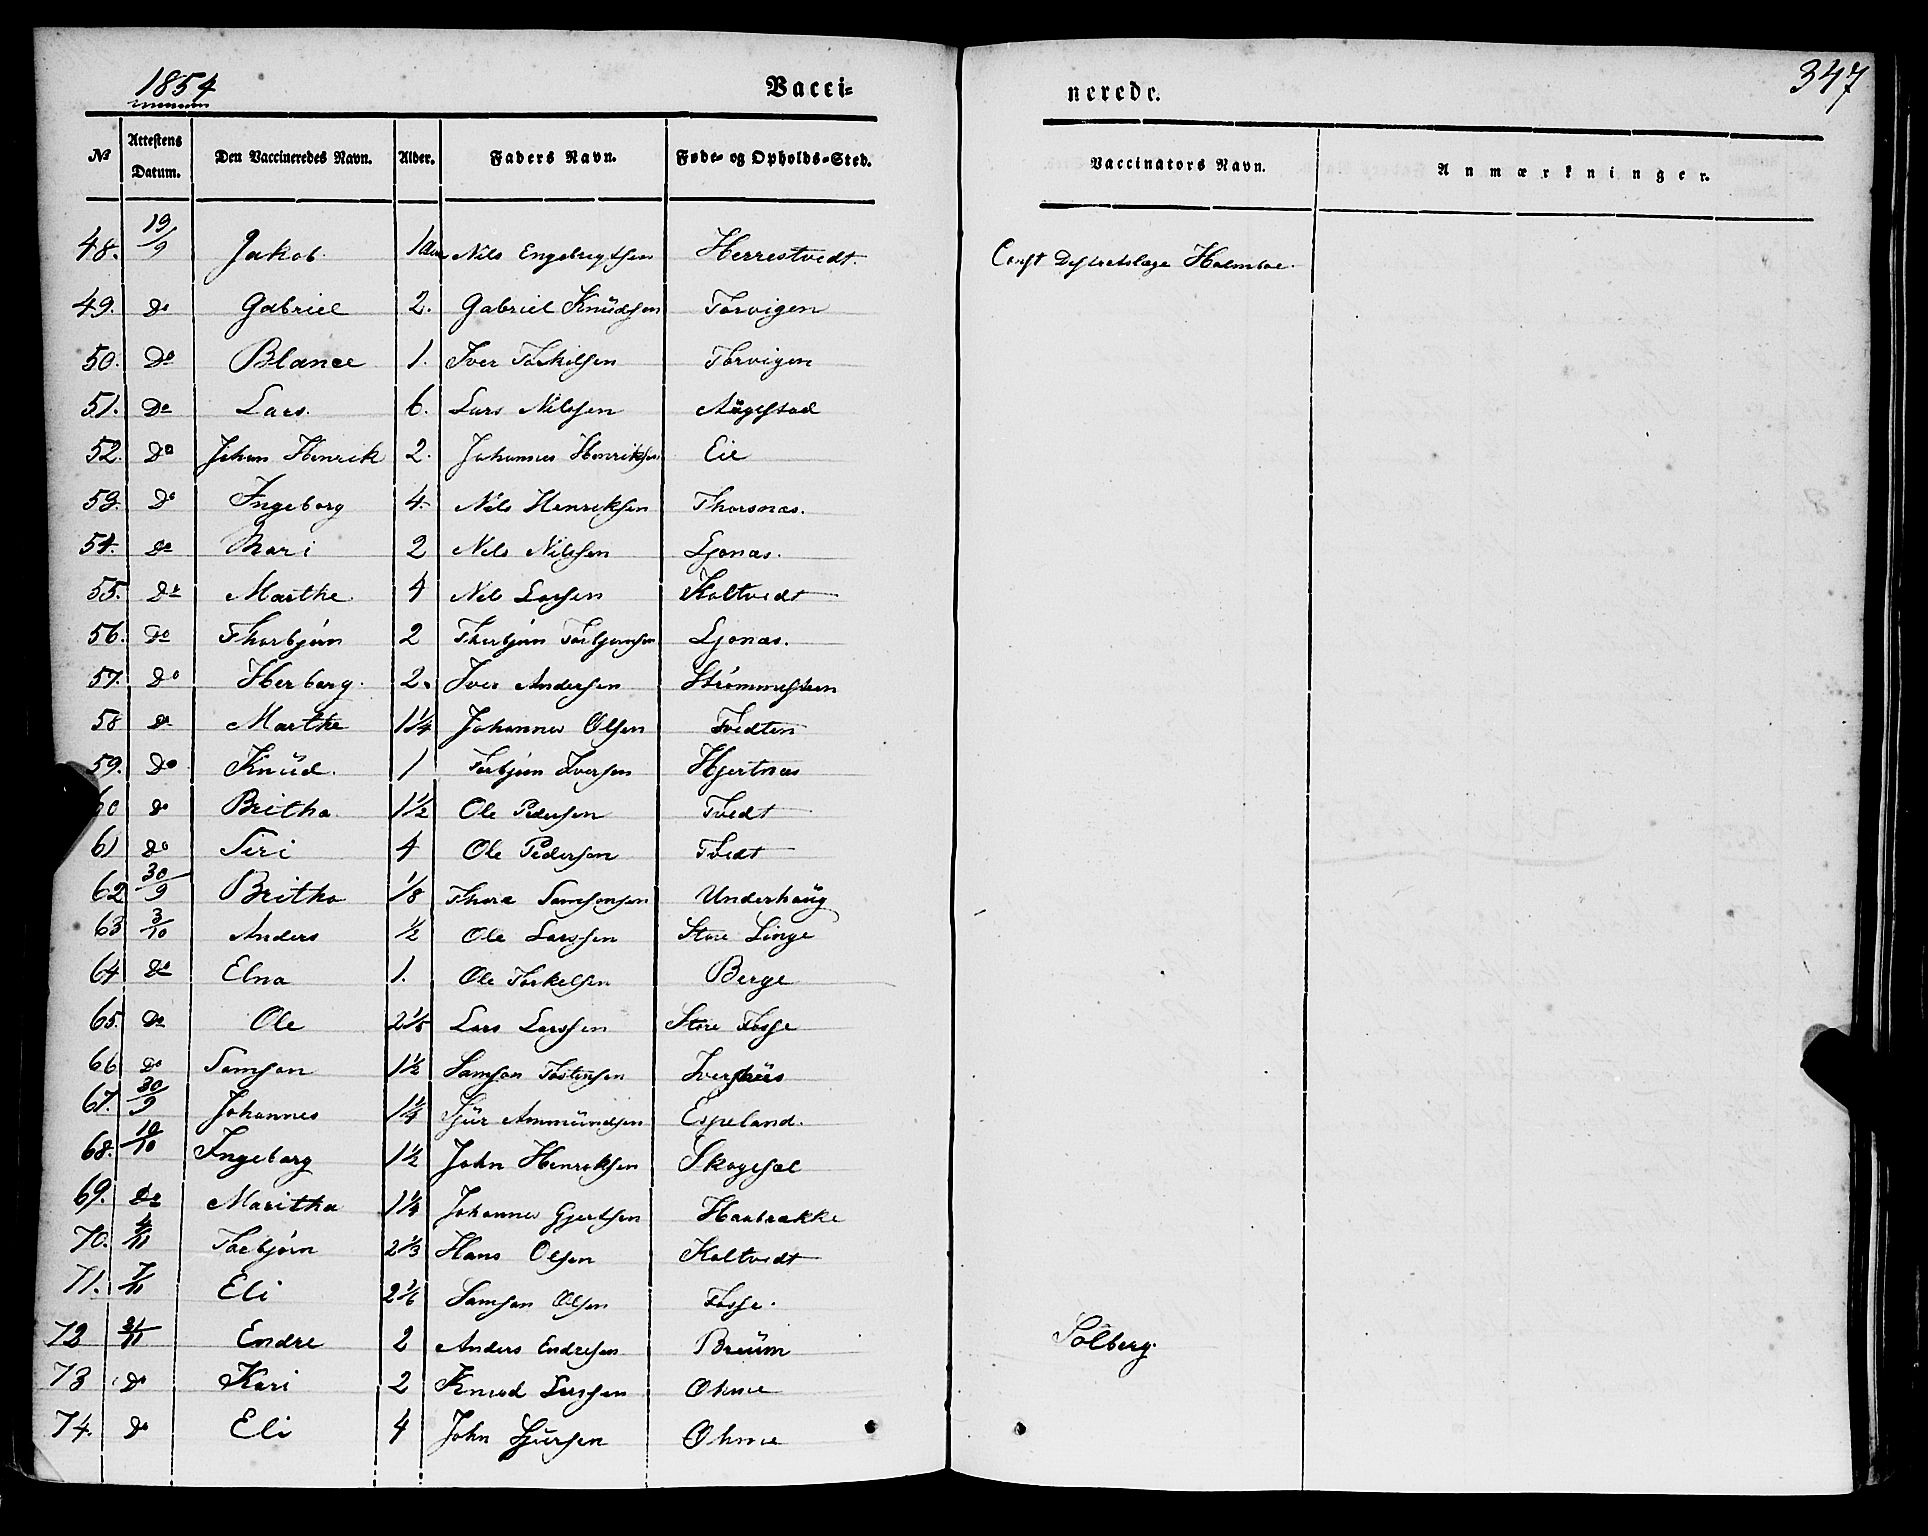 1854
Vacci=
nerede.
347
No Attestens Datum. Den Vaccineredes Navn. Alder. Faders Navn. Føde- og Opholds-Sted. Vaccinators Navn. Anmærkninger.
48. 19/9 Jakob. 1 Nils Engebregtsen Herrestvedt. Const Holmboe.
49. Do Gabriel 2. Gabriel Knüdsen Torvigen
50. Do Blance 1. Iver Torkilsen Torvigen
51. Do Lars. 6. Lars Nilssen Aügestad
52. Do Johan Henrik 2. Johannes Henriksen Eie
53. Do Ingeborg 4. Nils Henriksen Thorsnæs.
54. Do Mari 2 Nils Nilssen Ljonæs.
55. Do Marthe 4 Nils Larsen Koltvedt
56. Do Thorbjörn 2 Thorbjörn Torbjørnsen Ljonæs.
57. Do Herborg. 2. Iver Andersen Strømmesteen
58 Do Marthe 1 1/4 Johannes Olsen Tvedten
59. Do Knüd. 1 Torbjörn Iversen Hjertnæs
60 Do Britha 1 1/2 Ole Pedersen Tvedt
61 Do Siri 4 Ole Pedersen Tvedt
62 30/9 Britha 1/8 Thore Samsonsen Underhaüg
63 3/10 Anders 1/2 Ole Larssen Store Linge
64 Do Elna 1. Ole Torkelsen Berge
65. Do Ole 2 1/5 Lars Larssen Store Fosse
66 Do Samson 1 1/2 Samson Tostensen Iverhüs
67. 30/9 Johannes 1 1/4 Sjür Ammündsen Espeland.
68. 10/10 Ingeborg 1 1/2 John Henriksen Skogesæl
69. Do Maritha 1 1/4 Johannes Gjertsen Haabrække
70. 4/11 Torbjörn 2 1/3 Hans Olsen Koltvedt
71. 7/11 Eli 2 1/6 Samson Olsen Fosse.
72 21/11 Endre 2 Anders Endresen Breüm Sölberg.
73 Do Kari 2 Knud Larssen Ohme
74. Do Eli 4 John Sjursen Ohme